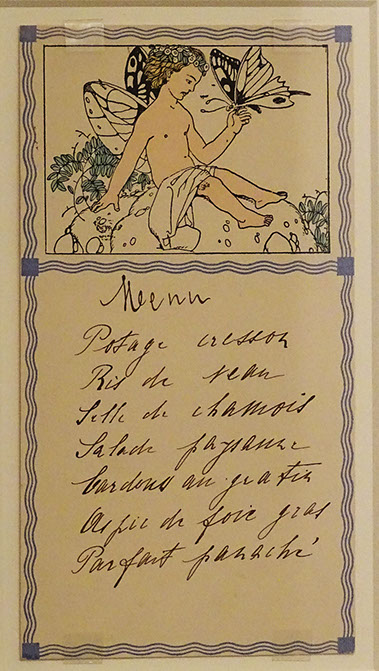 Menu
Potage cresson
Ris de veau
Selle de chamois
Salade paysanne
Cardons au gratin
Aspic de foie gras
Parfait panaché